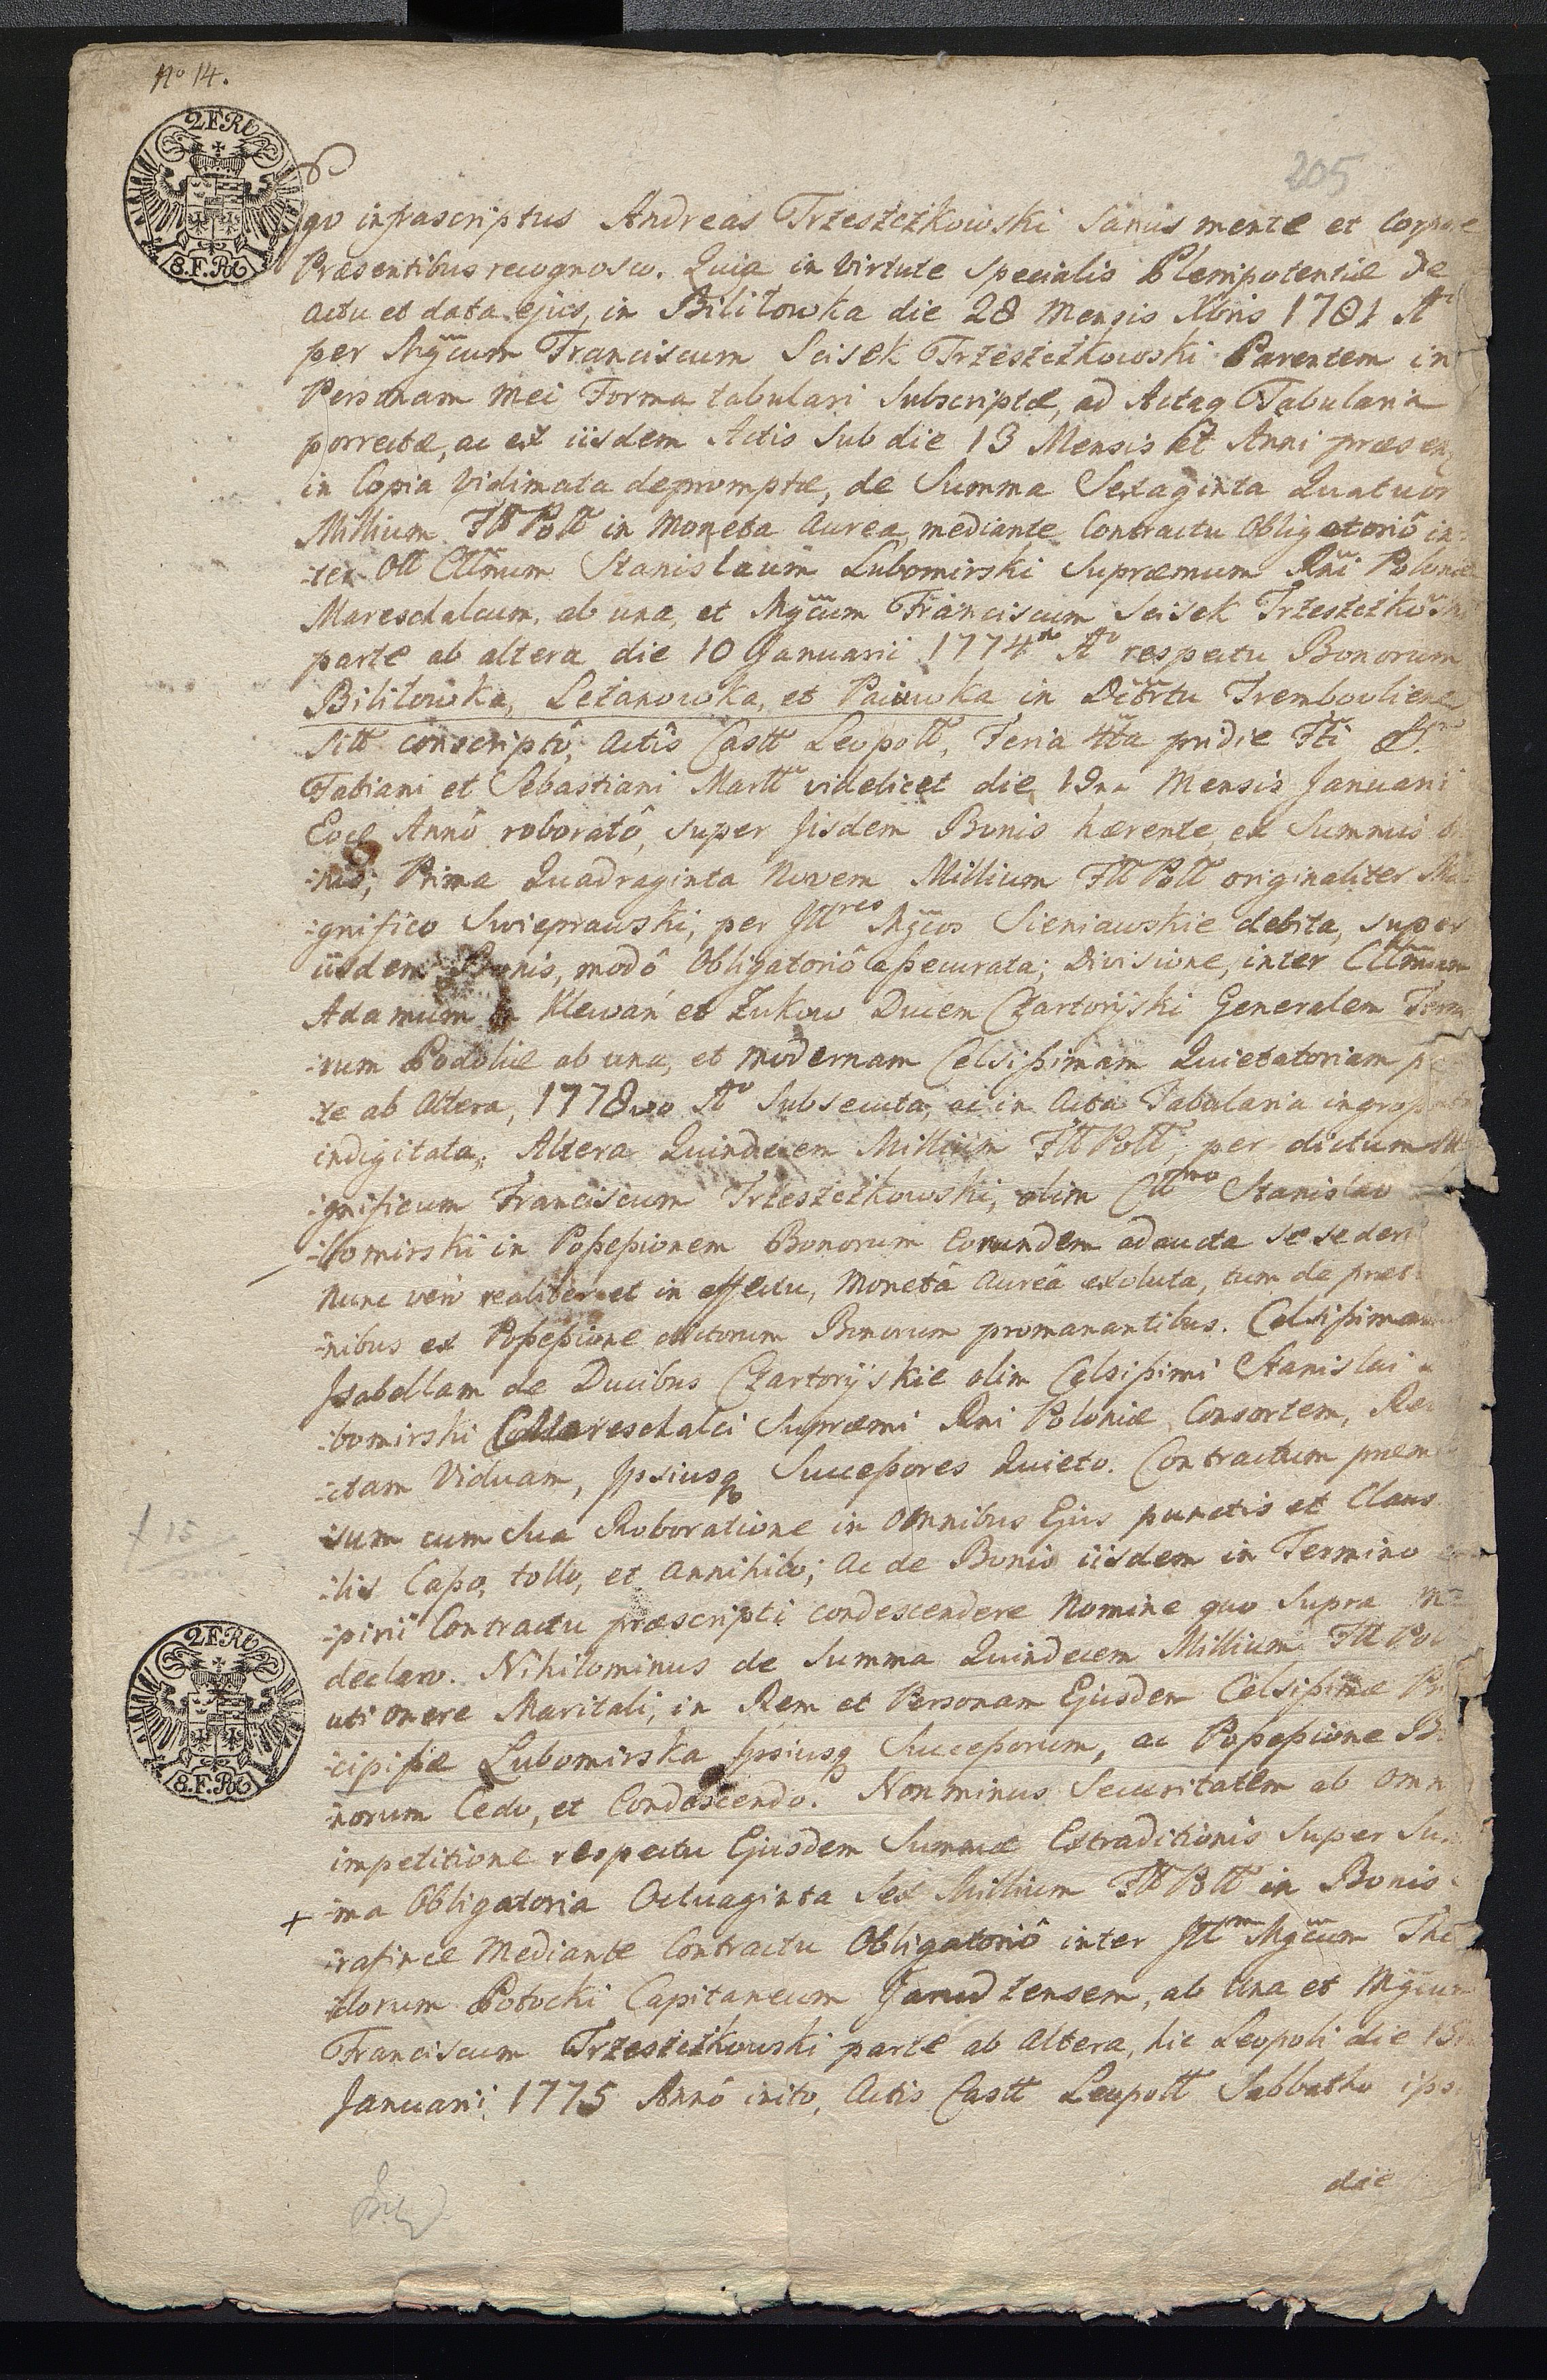 No 14.
2 F. Rh
8. F. Rh
205
Ego infrascriptus Andreas Trzeszczkowski Sanus mente et Corpore
Præsentibus recognosco. Quia in Virtute Specialis Plenipotentiæ de
actu et data ejus, in Bilitowka die 28 Mensis Xbris 1781 Ao
per Mgcum Franciscum Scisek Trzeszczkowski Parentem in
Personam mei Forma tabulari Subscriptæ, ad Actaq Tabularia
porrectæ, ac ex iisdem Actis Sub die 13 Mensis et Anni præsen
in Copia Vidimata depromptæ, de Summa Sexaginta Quatuor
Millium Fll Poll in Moneta aurea, mediante Contractu Obligatoriô in-
-ter Oll Cllmum Stanislaum Lubomirski Supræmum Rni Poloniæ
Mareschalcum, ab una, et Mgcum Franciscum Scisek Trzeszczkowski
parte ab altera die 10 Januarii 1774to Ao respectu Bonorum
Bilitowka, Leżanowka, et Paiowka in Dictrtu Trembowliens
Sitt conscriptô, Actis Castt Leopoll, Feria 4ta pridie Fti S.
Fabiani et Sebastiani Martt videlicet die 19na Mensis Januarii
Eod Annô roboratô, super Jisdem Bonis hærente, ex Summis
Prima Quadraginta Novem Millium Fll Poll originaliter Ma-
-gnifico Swieprawski, per Jllres Mgcos Sieniawskie debita, super
iisdem Bonis, modô Obligatoriô aßecurata; Divisione, inter Cllmum
Adamum in Klewań et Żukow Ducem Czartoryski Generalem Terra-
-rum Podoliæ ab una, et modernam Celsißimam Quietatoriam par-
-te ab Altera, 1778vo Ao Subsecuta, ac in Acta Tabularia ingroß
indigitata; Altera Quindecem Millium Fll Poll, per dictum Ma-
-gnificum Franciscum Trzeszczkowski, olim Cllmo Stanislao
-bomirski in Poßeßionem Bonorum Eorundem adaucta se se
Nunc vero realiter et in effectu, Monetâ aureâ exoluta, tum de
-nibus ex Poßeßione dictorum Bonorum promanantibus. Celsißimam
Jsabellam de Ducibus Czartoryskie olim Celsißimi Stanislai
-bomirski Mareschalci Supræmi Rni Poloniæ Consortem, Reli
-ctam Viduam, Jpsiusq Succeßores Quieto. Contractum præm
-sum cum Sua Roboratione in Omnibus Ejus punctis et Claus
-lis Caßo, tollo, et annihilo; ac de Bonis iisdem in Termino
-pirii Contractu præscripti condescendere Nomine quo Supra
declaro. Nihilominus de Summa Quindecem Millium Fll Poll
uti onere Maritali, in Rem et Personam Ejusdem Celsißimæ Prin
-cipißæ Lubomirska Jpsiusq Succeßorum, ac Poßeßione Bo
-norum Cedo, et Condescendo. Non minus Securitatem ab Omn
impetitione respectu Ejusdem Summæ Extraditionis Super Sum
+ -ma Obligatoria Octuaginta Sex Millium Fll Poll in Bonis
-rasince Mediante Contractu Obligatoriô inter Jllm Mgcum Theo
-dorum Potocki Capitaneum, ab Una et Mgcum
Franciscum Trzeszczkowski parte ab altera, hic Leopoli die 15
Januarii 1775 Annô inito, Actis Castt Leopoll Sabbatho ipso
die
15
2 F. Rh
8. F. Rh